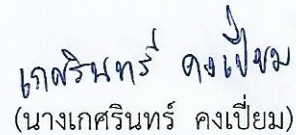 เกศรินทร์ คงเปี่ยม
(นางเกศรินทร์ คงเปี่ยม)